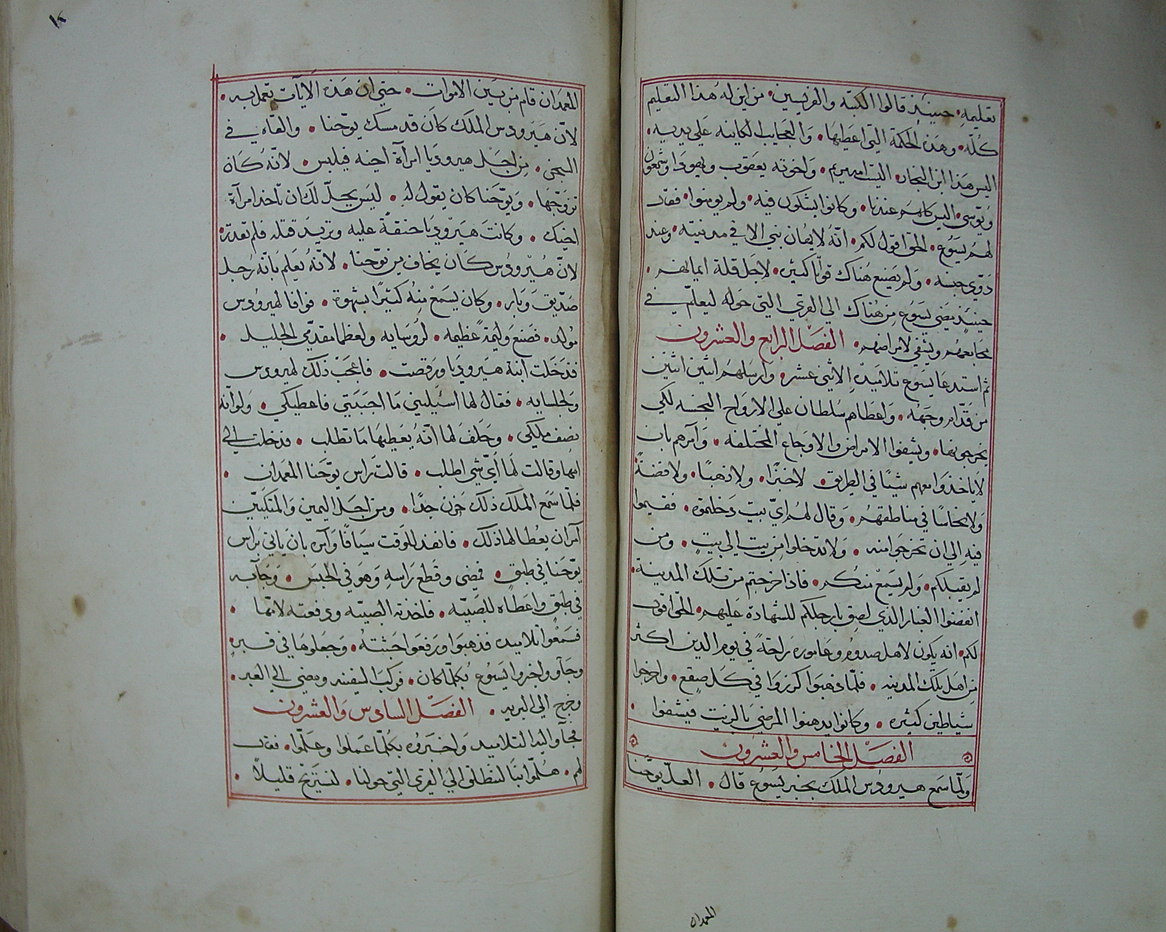 تعليمه • حينيذ قالوا الكتبه والفريسين • من اين له هذا التعليم
كله • وهذه الحكمة التي اعطها • والعجايب الكاينه علي يديه •
اليس هذا ابن النجار • اليست امه مريم • واخوته يعقوب ويهودا وشمعون
ويوسي • اليس كلهم عندنا • وكانوا يشكون فيه • ولم يومنوا • فقال
لهم يسوع • الحق اقول لكم • انه لا يهان نبي الا في مدينته • وعند
ذوي جنسه • ولم يصنع هناك قواتا كثير • لاجل قلة ايمانهم •
حينيذ مضي يسوع من هناك الي القري التي حوله ليعلم في
مجامعهم ويشفي لامراضهم • الفصل الرابع والعشرون
ثم استدعا يسوع تلاميذه الاثني عشر • وارسلهم اثنين اثنين
من قدام وجهه • واعطاهم سلطان علي الارواح النجسه لكي
يخرجونها • ويشفوا الامراض والاوجاع المختلفه • وامرهم بان
لا ياخذوا معهم شيئا في الطريق • لا خبزا • ولا ذهبا • ولا فضة
ولا نحاسا في مناطقهم • وقال لهم اي بيت دخلتموه • فقيموا
فيه الي ان تخرجوا منه • ولا تدخلوا من بيت الي بيت • ومن
لم يقبلكم • ولم يسمع منكم • فاذا خرجتم من تلك المدينة
انفضوا الغبار الذي لصق بارجلكم للشهادة عليهم • الحق اقول
لكم • انه يكون لاهل صدوم وعاموره راحة في يوم الدين اكثر
من اهل تلك المدينه • فلما ذهبوا كرزوا في كل صقع • واخرجوا
شياطين كثيره • وكانوا يدهنوا المرضي بالزيت فيشفوا •
الفصل الخامس والعشرون
ولما سمع هيرودس الملك بخبر يسوع قال • العل يوحنا
المعمدان
للعمدان قام من بين الاموات • حتي ان هذه الايات يعمل به •
لان هيرودس الملك كان قد مسك يوحنا • والقاه في
السجن • من اجل هيروديا امرأة اخيه فيلبس • لانه كان
تزوجها • ويوحنا كان يقول له • ليس يحل لك ان تاخذ امرأة
اخيك • وكانت هيروديا حنقة عليه وتريد قتله فلم تقدر •
لان هيرودس كان يخاف من يوحنا • لانه يعلم بانه رجل
صديق وبار • وكان يسمع منه كثيرا بشهوة • فوافا لهيرودس
مولده • فصنع وليمة عظيمه • لروسايه ولعظما مقدمي الجليل •
فدخلت ابنة هيروديا ورقصت • فاعجب ذلك لهيرودس
ولجلسايه • فقال لها اسيليني ما احببتي فاعطيكي • ولو انه
نصف ملكي • وحلف لها انه يعطيها ما تطلب • فدخلت الي
امها وقالت لها اي شي اطلب • قالت راس يوحنا المعمدان •
فلما سمع الملك ذلك حزن جدا • ومن اجل اليمين والمتكيين
امر ان يعطا لها ذلك • فانفد للوقت سيافا وامر بان ياتي براس
يوحنا في طبق • فمضي وقطع راسه وهو في الحبس • وجآ به
في طبق واعطاه للصبيه • فاخدته الصبيه ودفعته لامها •
فسمعوا تلاميذه فدهبوا ورفعوا جثته • وجعلوها في قبر •
وجاو واخبروا يسوع بكلما كان • فركب السفينه ومضي الي العبر •
وخرج الي البريه • الفصل السادس والعشرون
فجاو اليه التلاميذ واخبروه بكلما عملوا وعلموا • فقال
لهم • هلموا بنا لننطلق الي القري التي حولنا • لنستريح قليلا •